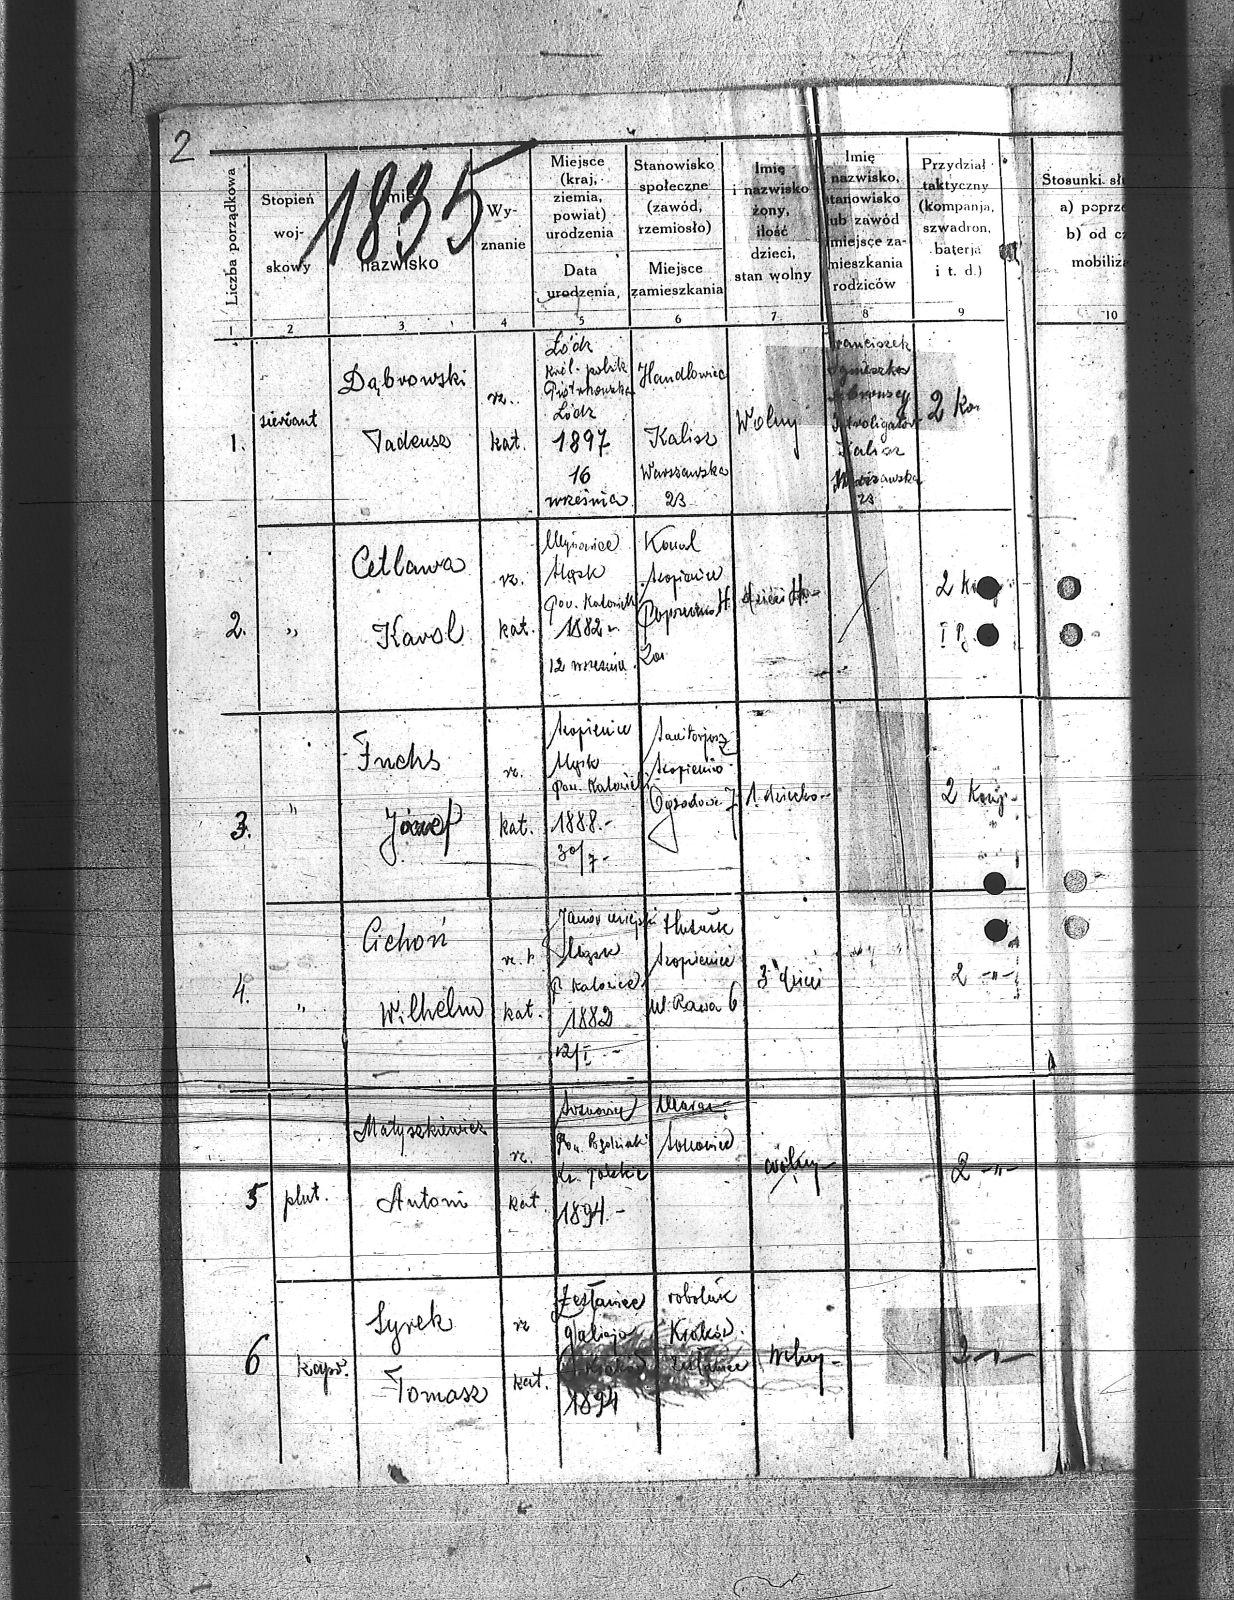 2
1835
Liczba porządkowa
Stopień
woj-
skowy
Imię
i
nazwisko
Wy-
znanie
Miejsce
(kraj,
ziemia,
powiat)
urodzenia
Data
urodzenia,
Stanowisko
społeczne
(zawód,
rzemiosło)
Miejsce
zamieszkania
Imię
i nazwisko
żony,
ilość
dzieci,
stan wolny
Imię
nazwisko,
stanowisko
lub zawód
miejsce za-
mieszkania
rodziców
Przydział
taktyczny
(kompanja,
szwadron,
baterja
i t. d.)
Stosunki sł
a) poprze
b) od cz
mobiliza
1 2 3 4 5 6 7 8 9 10
1.
sierżant
Dąbrowski
Tadeusz
rz.
kat.
Łódź
Król. polsk
Piotrkowska
Łódź
1897
16
września
Handlowiec
Kalisz
Warszawska
23
Wolny
Franciszek
Agnieszka
Introligator
Kalisz
Warszawska
23
2 Ko
2.
"
Cetlawa
Karol
rz.
kat.
Śląsk
Pow. Katowick
1882
12 wrześniu
Kowal
Szopienice
dzieci
2
I P
3.
"
Fuchs
Józef
rz.
kat.
Szopienice
Śląsk
Pow. Katowicki
1888.-
30/7-
Sanitarjusz
Szopienice
Ogrodowa 7
1 dziecko-
2 Komp-
4.
"
Cichoń
Wilhelm
rz.
kat.
Janów miejski
Śląsk
P. Katowice
1882
12/I -
Hutnik
Szopienice
ul. Rawa 6
3 dzieci
2 -"-
5
plut.
Małyszkiewicz
Antoni
rz.
kat
Sosnowice
Pow. Będziński
Kr. polskie
1894.-
Sosnowice
wolny-
2 -"-
6
kapr.
Syrek
Tomasz
rz
kat.
Zesławice
galicja
Kraków
1894
robotnik
Kraków.
Zesławice
Wolny-